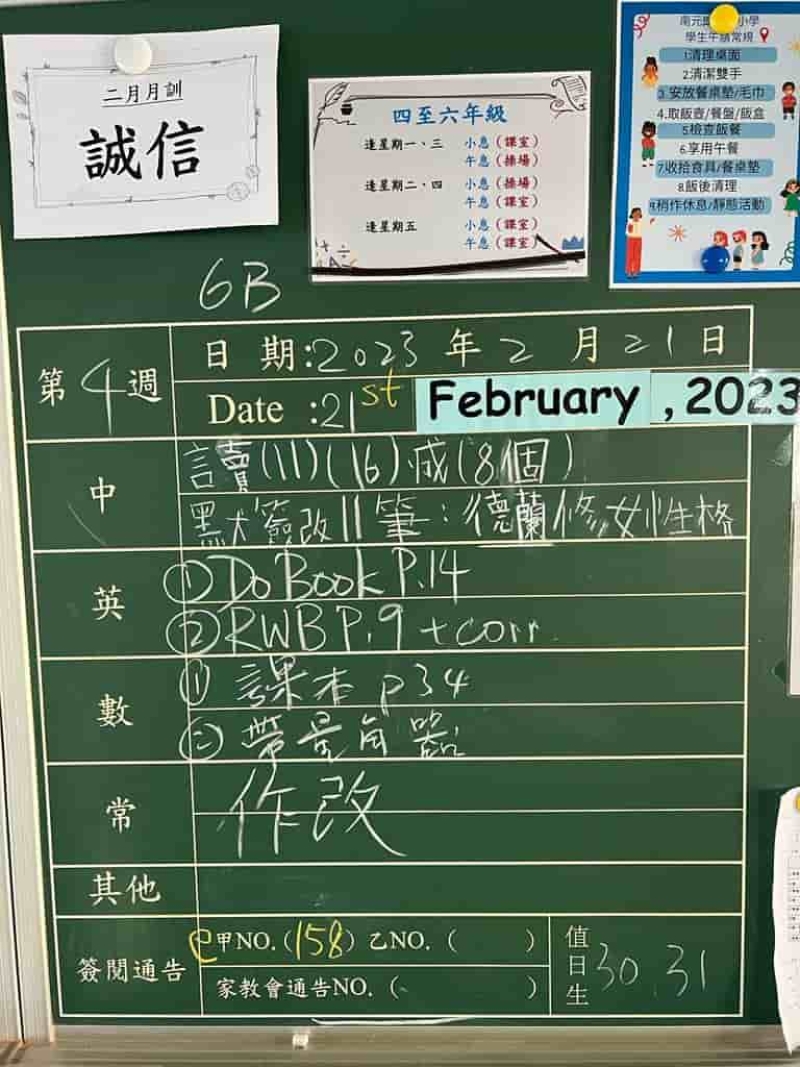 二月月訓
誠信
四至六年級
逢星期一、三 小息(課室)
午息(操場)
逢星期二、四 小息(操場)
午息(課室)
逢星期五 小息(課室)
午息(課室)
南元 小學
學生午膳常規
1.清理桌面
2.清潔雙手
3.安放餐桌墊/毛巾
4.取飯壺/餐盤/飯盒
5檢查飯餐
6.享用午餐
7.收拾食具/餐桌墊
8.飯後清理
9.稍作休息/靜態活動
6B
第4週
日期:2023年2月21日
Date :21st February ,2023
中
讀(11)(16)成(8個)
默簽改 11筆:德蘭修女性格
英
①Do Book P.14
②RWB P.9 + corr.
數
① 課本 p34
② 帶量角器
常
作改
其他
簽閱通告
e甲NO.(158) 乙NO.( )
家教會通告NO.( )
值日生
30.31